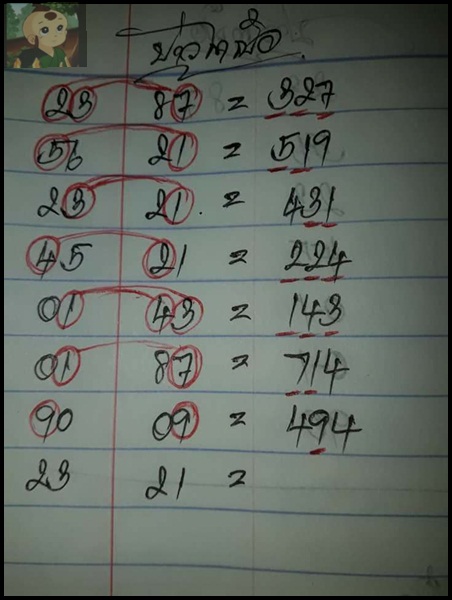 23 87 = 327
56 21 = 519
23 21. = 431
45 21 = 224
01 43 = 143
01 87 = 714
90 09 = 494
23 21 =